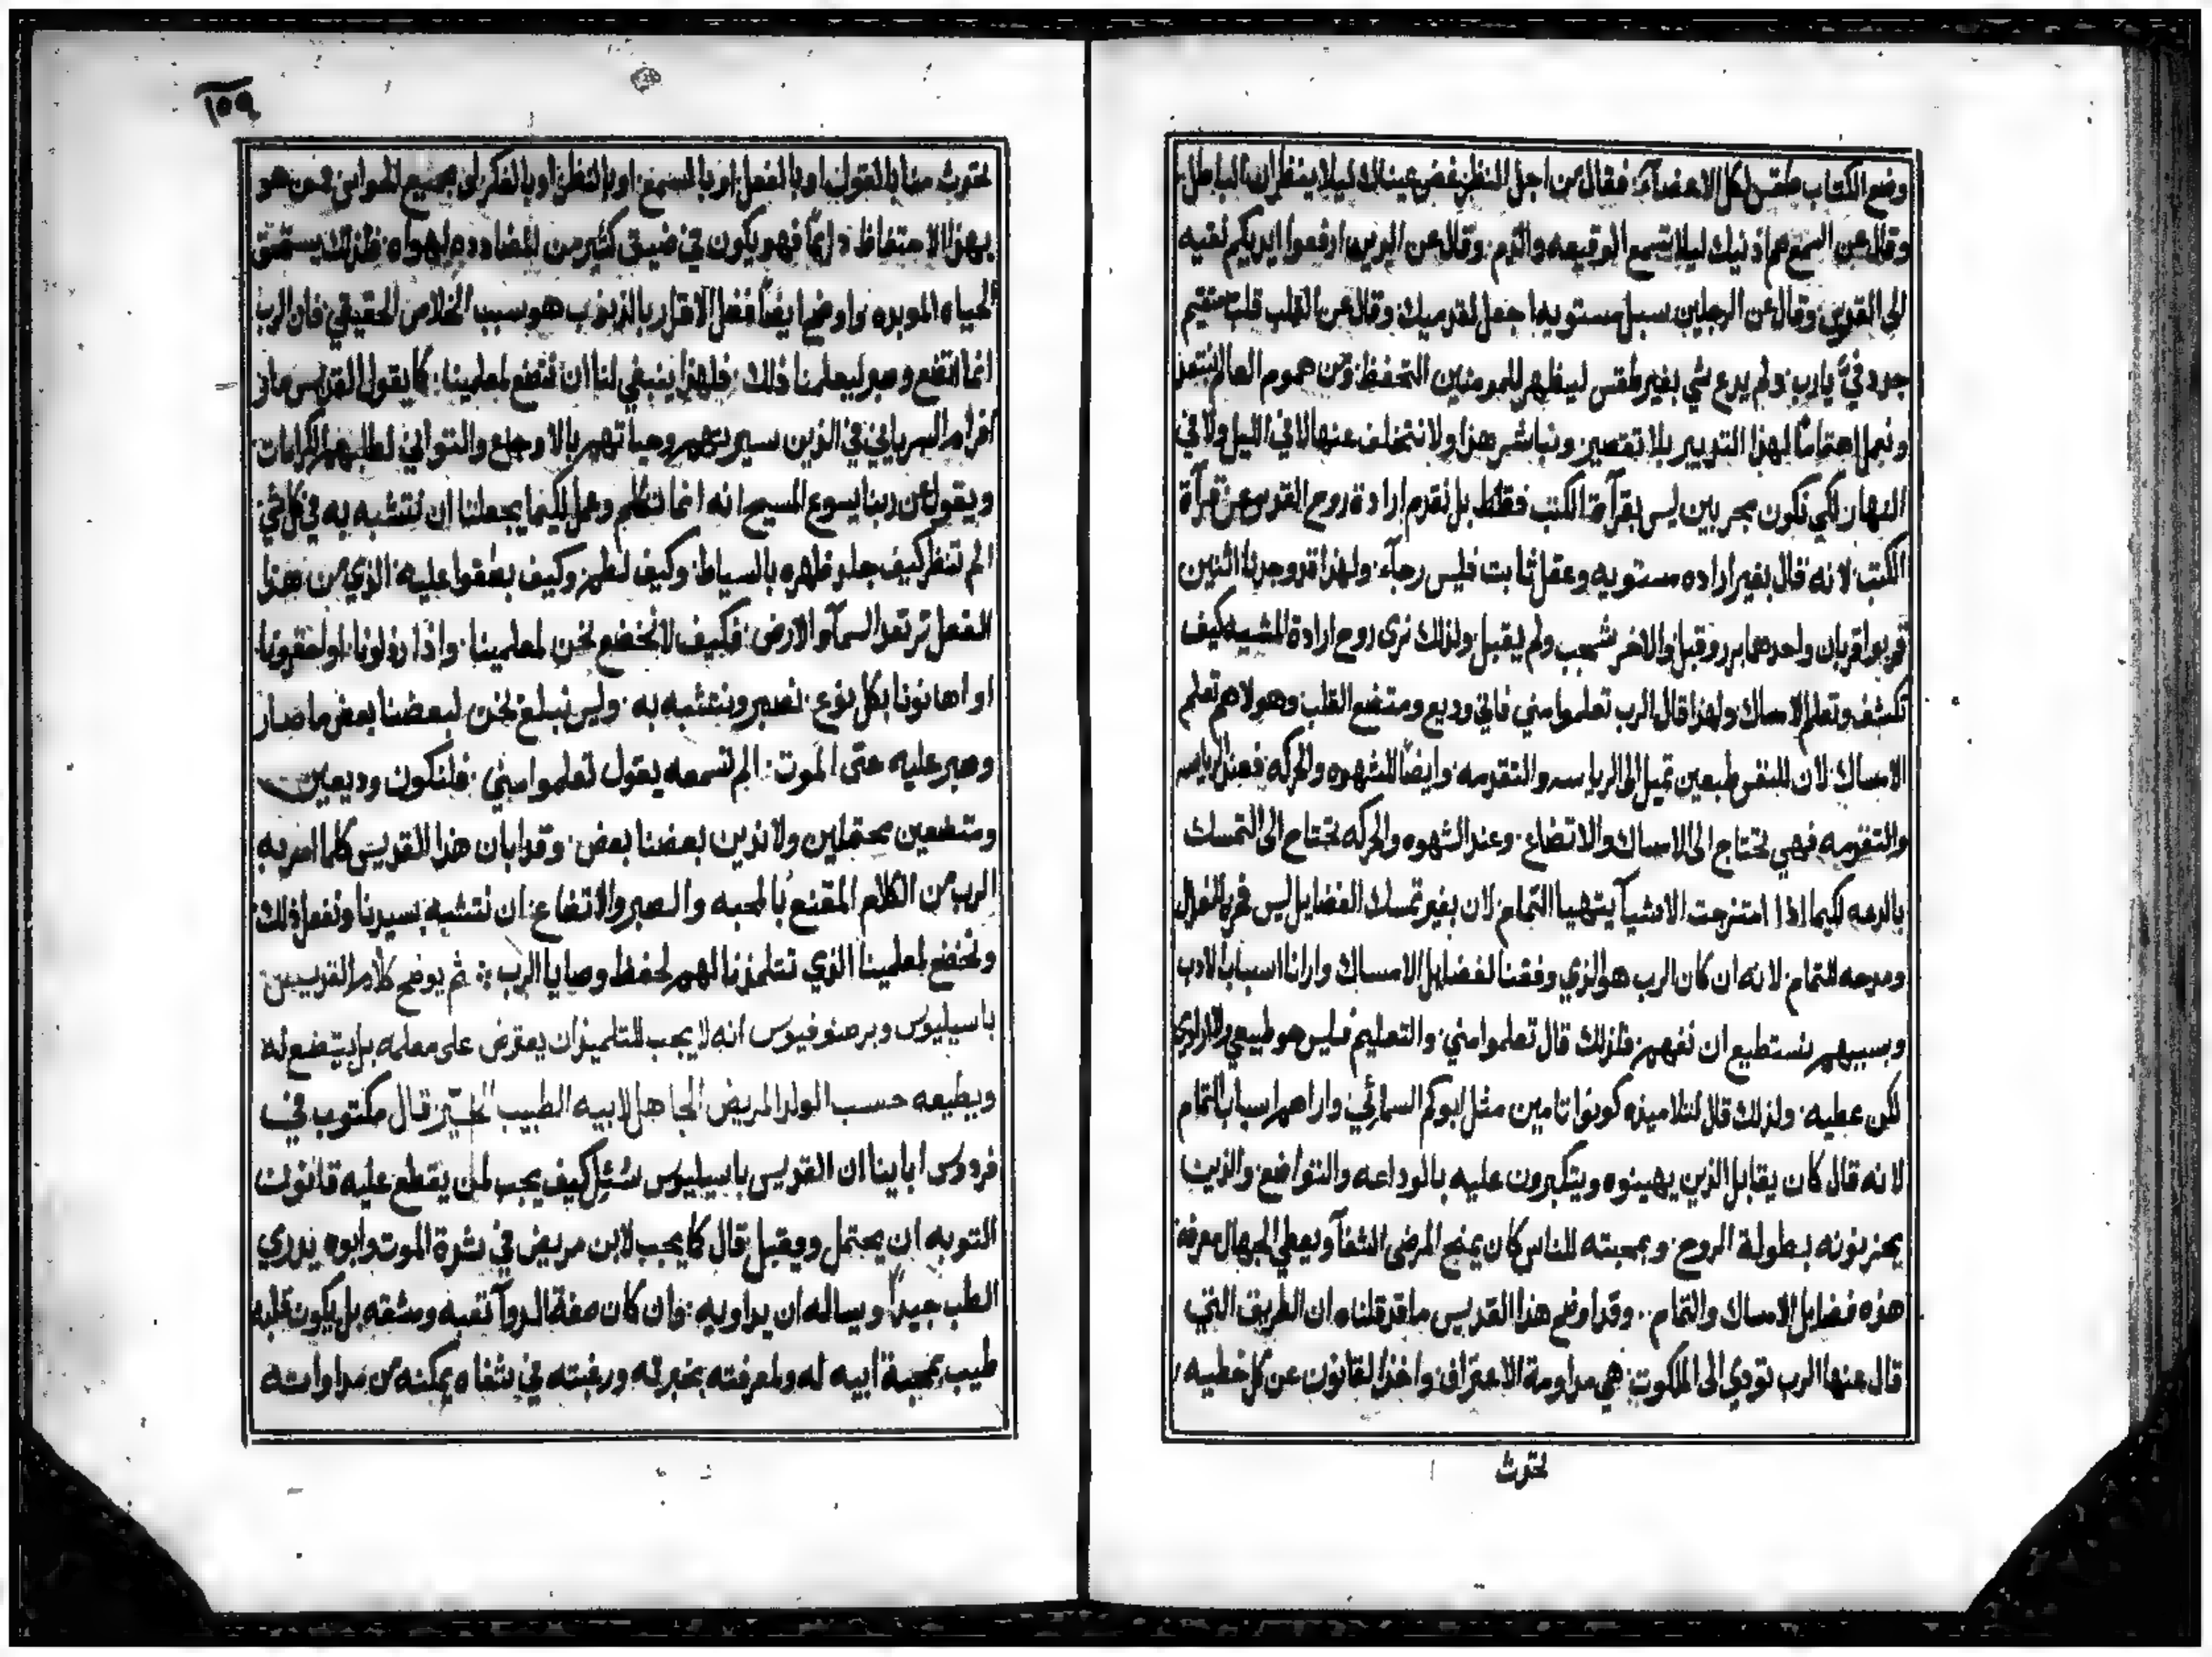 وضع الكتاب طقس لكل الاعضآء فقال من اجل النظر غض عيناك ليلا ينظران الباطل
وقال عن السمع صم اذنيك ليلا تسمع الوقيعه والذم وقال عن اليدين ارفعوا ايديكم نقيه
الى القدس وقال عن الرجلين سبل مستويه اجعل لقدميك وقال عن القلب قلب مستقيم
جدد فيَّ يارب ولم يدع شي بغير طقس ليظهر للمومنين التحفظ ومن هموم العالم
ونبمل اهتماما لهذا التدبير بلا تقصير ونباشر هذا ولا نتخلف عنها لا في الليل ولا في
النهار لكي نكون مجربين ليس بقرآة الكتب فقط بل نقدم ارادة روح القدس عن قرآة
الكتب لانه قال بغير اراده مستويه وعقل ثابت فليس رجآء ولهذا قد وجدنا اثنين
قربوا قربان واحدهما برر وقبل والاخر شجب ولم يقبل ولذلك نرى روح ارادة المشيه كيف
تكشف وتعلم الامساك ولهذا قال الرب تعلموا مني فاني وديع ومتضع القلب وهولاهم تعلم
الامساك لان للنفس طبعين تميل الى الرياسه والتقدمه وايضًا للشهوه والحركه فعند الرياسه
والتقدمه فهي تحتاج الى الامساك والاتضاع وعند الشهوه والحركه تحتاج الى التمسك
بالدعه لكيما اذا امتزجت الاشيآ يتهيا التمام لان بغير تمسك الفضايل ليس
ومدحه للتمام لانه ان كان الرب هو الذي وفقنا لفضايل الامساك وارانا اسباب الادب
وبسببهم نستطيع ان نفهم فلذلك قال تعلموا مني والتعليم فليس هو طبيعي
لكن عطيه ولذلك قال لتلاميذه كونوا تامين مثل ابوكم السمائي واراهم اسباب التمام
لانه قال كان يقابل الذين يهينوه ويتكبرون عليه بالوداعه والتواضع والذين
يحزنونه بطولة الروح وبمحبته للناس كان يمنح المرضى الشفآ ويعطي الجهال معرفة
هذه فضايل الامساك والتمام وقد اوضح هذا القديس ما قد قلناه ان الطريق التي
قال عنها الرب تودي الى الملكوت هي مداومة الاعتراف واخذ القانون عن كل خطيه
تحدث
١٥٩
تحدث منا بالقول او بالفعل او بالسمع او بالنظر او بالفكر او بجميع الحواس فمن هو
بهذا الاحتفاظ دايمًا فهو يكون في ضيق كثير من المضادده لهواه فلذلك يستحق
الحياه الموبده واوضح ايضًا فضل الاقرار بالذنوب هو سبب الخلاص الحقيقي فان الرب
انما اتضع وصبر ليعلمنا ذلك فلهذا ينبغي لنا ان نتضع لمعلمينا كما يقول القديس مار
افرام السرياني في الذين سيرتهم وحياتهم بالاوجاع والتواني لطلبهم الكرامات
ويقول عن ربنا يسوع المسيح انه انما تكلم وعمل لكيما يجعلنا ان نتشبه به في كل شي
الم تنظر كيف جلد ظهره بالسياط وكيف لطم وكيف بصقوا عليه الذي من هذا
الفعل ترتعد السمآء والارض فكيف لا نخضع نحن لمعلمينا واذا رذلونا او احقرونا
او اهانونا بكل نوع نصبر ونتشبه به وليس نبلغ نحن لبعضنا بعض ما صار
وصبر عليه حتى الموت الم تسمعه يقول تعلموا مني فلنكون وديعين
ومتضعين محتملين ولاذين بعضنا بعض وقد ابان هذا القديس كلما امر به
الرب من الكلام المقنع بالمحبه والصبر والاتضاع ان نتشبه بسيرنا ونفعل ذلك
ونخضع لمعلمينا الذي تتلمذنا لهم لحفظ وصايا الرب ثم يوضح كلام القديسين
باسيليوس وبرصنوفيوس انه لا يجب للتلميذ ان يعترض على معلمه بل يتضع له
ويطيعه حسب الولد المريض الجاهل لابيه الطبيب الخبير قال مكتوب في
فردوس اباينا ان القديس باسيليوس سُئل كيف يجب لمن يقطع عليه قانون
التوبه ان يحتمل ويقبل قال كما يجب لابن مريض في شدة الموت وابوه يدري
الطب جيدًا ويساله ان يداويه وان كان صفة الدوآ تتعبه ومشقه بل يكون قلبه
طيب بمحبة ابيه له ولمعرفته بخبرته ورغبته في شفاه يمكنه من مداواته